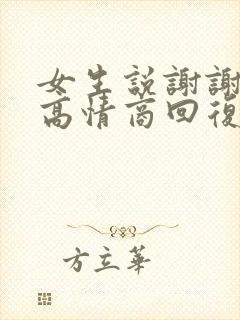 女生説謝謝
高情商回復
方立華